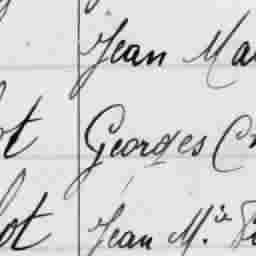 Jean Ma
ot Georges C
ot Jean M.ie